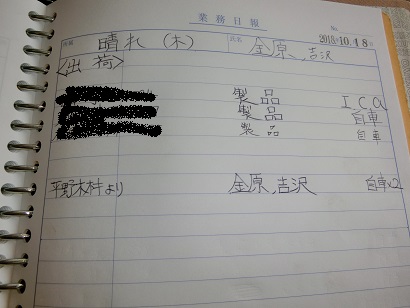 業務日報
No.
晴れ (木) 氏名 金原、吉沢 2018・10.4 8
<出荷>
製品 I.C.a
製品 自車
製品 自車
平野木材より 金原、吉沢 自車×2